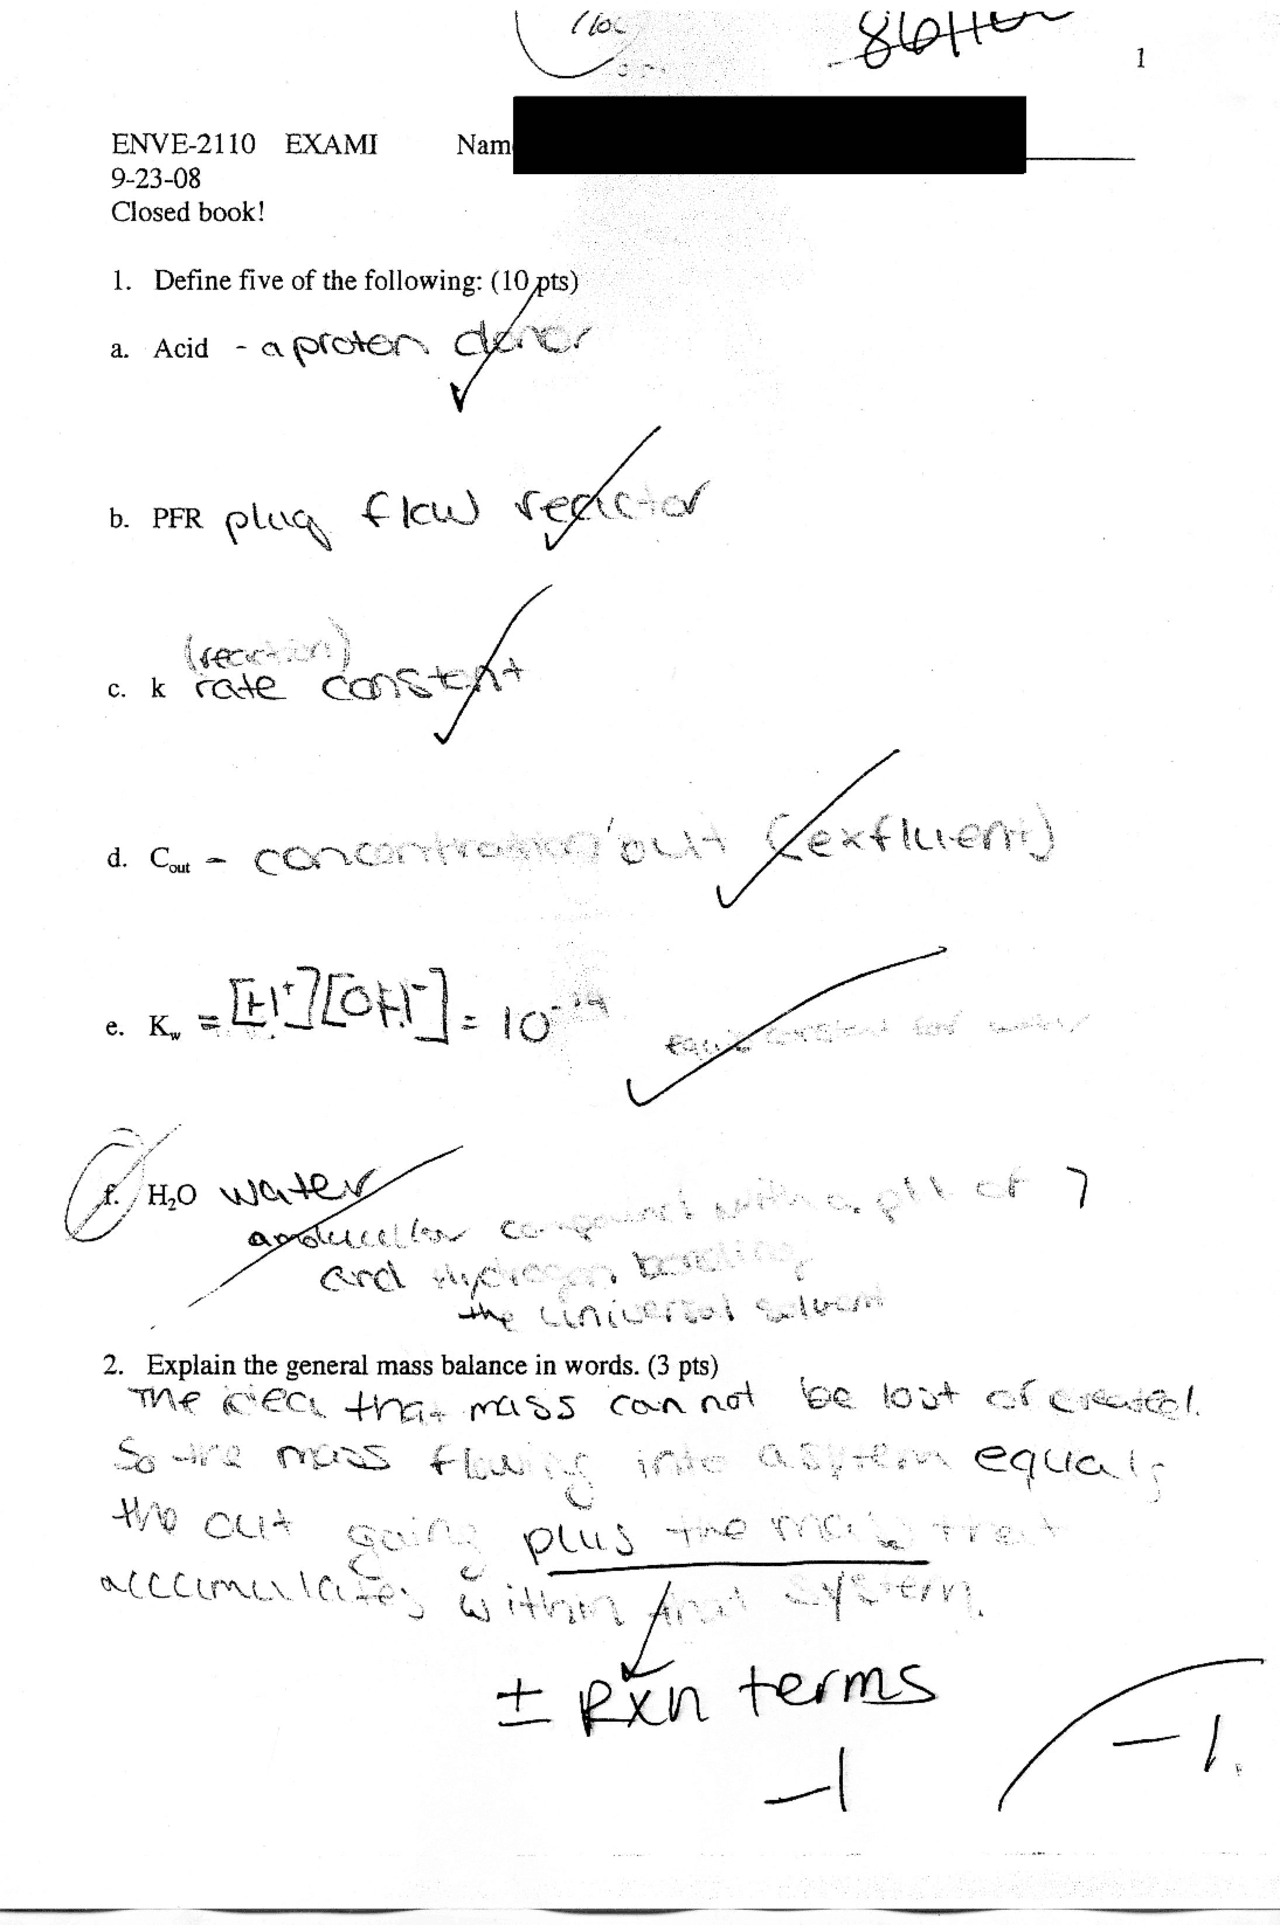 86/100
1
ENVE-2110 EXAMI Nam
9-23-08
Closed book!
1. Define five of the following: (10 pts)
a. Acid - a proton donor
b. PFR plug flow reactor
(reaction)
c. k rate constant
d. Cout - concentration out (exfluent)
e. Kw = [H+][OH-] = 10-14
equil constant for water
f. H2O water
a molecular compound with a pH of 7
and Hydrogen bonding
the universal solvent
2. Explain the general mass balance in words. (3 pts)
The idea that mass can not be lost or created.
So the mass flowing into a system equals
the out going plus the mass that
accumulates within that system.
± Rxn terms
-1
-1